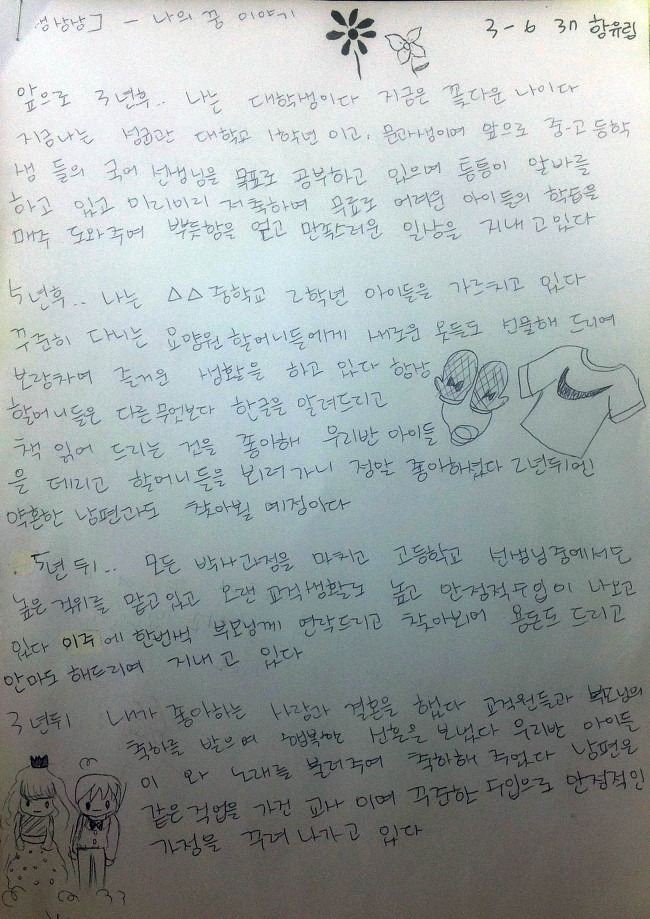 생상상 」 - 나의 꿈 이야기
3-6 37 황유림
앞으로 3년후.. 나는 대학생이다 지금은 꽃다운 나이다
지금나는 성균관 대학교 1학년 이고, 문과생이며 앞으로 중-고 등학
생 들의 국어 선생님을 목표로 공부하고 있으며 틈틈이 알바를
하고 있고 미리미리 저축하며 무료로 어려운 아이들의 학습을
매주 도와주며 뿌듯함을 얻고 만족스러운 일상을 지내고있다
5년후.. 나는 △△중학교 2학년 아이들을 가르치고 있다
꾸준히 다니는 요양원 할머니들에게 새로운 옷들도 선물해 드리며
보람차며 즐거운 생활을 하고 있다 항상
할머니들은 다른무엇보다 한글을 알려드리고
책 읽어 드리는 것을 좋아해 우리반 아이들
을 데리고 할머니들을 뵈러가니 정말 좋아하셨다 2년뒤엔
약혼한 남편과도 찾아뵐 예정이다
5년 뒤.. 모든 박사과정을 마치고 고등학교 선생님중에서도
높은 직위를 맡고있고 오랜 교직생활로 높고 안정적수입이 나오고
있다 이주에 한번씩 부모님께 연락드리고 찾아뵈어 용돈도 드리고
안마도 해드리며 지내고 있다
3년뒤 내가 좋아하는 사람과 결혼을 했다 교직원들과 부모님의
축하를 받으며 행복한 신혼을 보냈다 우리반 아이들
이 와 노래를 불러주며 축하해 주었다 남편은
같은 직업을 가진 교사 이며 꾸준한 수입으로 안정적인
가정을 꾸려나가고 있다